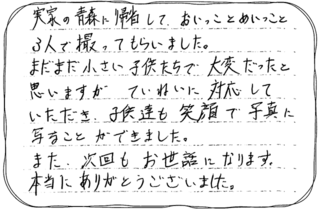 実家の青森に帰省して、おいっことめいっこと
3人で撮ってもらいました。
まだまだ小さい子供たちで、大変だったと
思いますが ていねいに 対応して
いただき、子供達も 笑顔で 写真に
写ること ができました。
また、次回も お世話に なります。
本当に ありがとうございました。